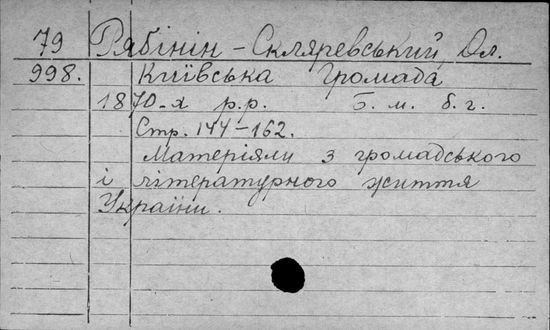 79 Рябінін - Скляревський, Ол.
998. Київська Громада
1870-х р.р. Б. м. б. г.
Стр. 144-162.
Матеріяли з громадського
і літературного життя
України.